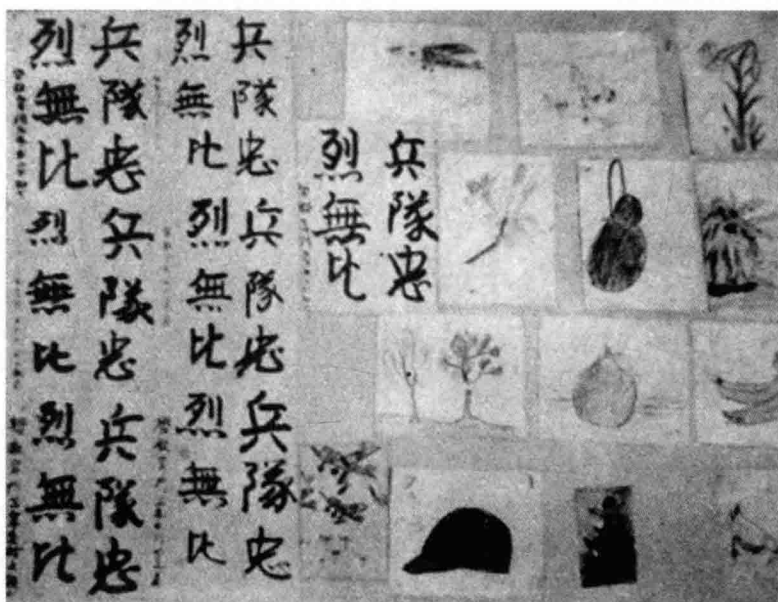 兵隊忠
烈無比
兵隊忠
烈無比
兵隊忠
烈無比
兵隊忠
烈無比
兵隊忠
烈無比
兵隊忠
烈無比
兵隊忠
烈無比